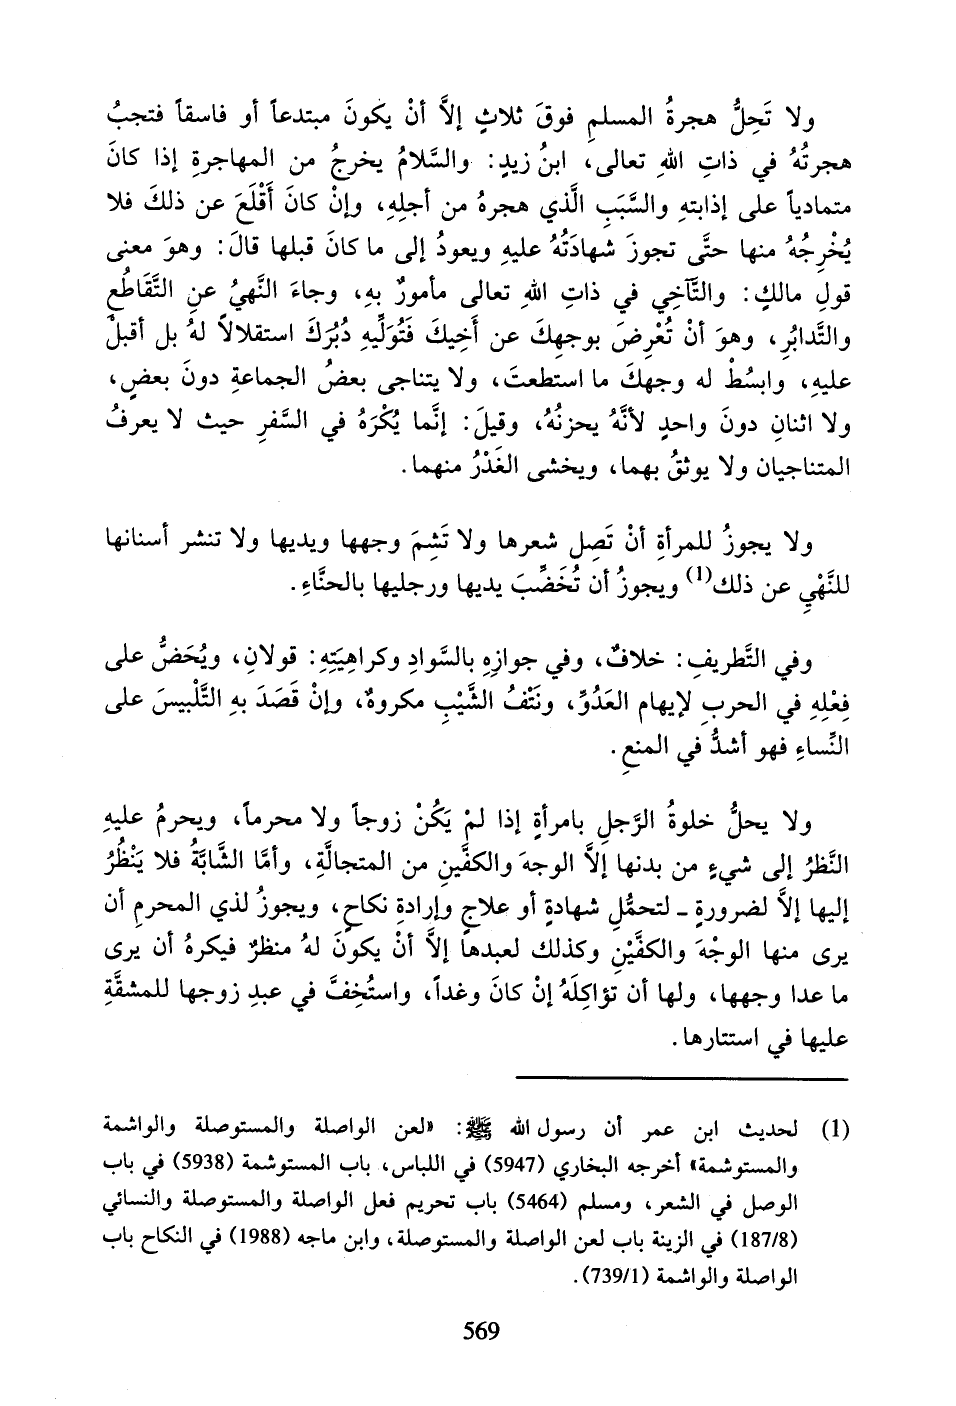 ولا تَحِلُّ هجرةُ المسلمِ فوقَ ثلاثٍ إلاَّ أنْ يكونَ مبتدعاً أو فاسقاً فتجبُ
هجرتُهُ في ذاتِ اللهِ تعالى، ابنُ زيدٍ: والسَّلامُ يخرجُ من المهاجرةِ إذا كانَ
متمادياً على إذابتهِ والسَّبَبِ الَّذي هجرهُ من أجلِهِ، وإنْ كانَ أَقْلَعَ عن ذلكَ فلا
يُخْرِجُهُ منها حتَّى تجوزَ شهادَتُهُ عليهِ ويعودُ إلى ما كانَ قبلها قالَ: وهوَ معنى
قولِ مالكٍ: والتَّآخِي في ذاتِ اللهِ تعالى مأمورٌ بهِ، وجاءَ النَّهيُ عنِ التَّقَاطُعِ
والتَّدابُرِ، وهوَ أنْ تُعْرِضَ بوجهِكَ عن أَخِيكَ فَتُوَلِّيهِ دُبُرَكَ استقلالاً لهُ بل أقبلْ
عليهِ، وابسُطْ له وجهكَ ما استطعتَ، ولا يتناجى بعضُ الجماعةِ دونَ بعضٍ،
ولا اثنانِ دونَ واحدٍ لأنَّهُ يحزنُهُ، وقيلَ: إنَّما يُكْرَهُ في السَّفرِ حيث لا يعرفُ
المتناجيان ولا يوثقُ بهما، ويخشى الغَدْرُ منهما.
ولا يجوزُ للمرأةِ أنْ تَصِل شعرها ولا تَشِمَ وجهها ويديها ولا تنشر أسنانها
للنَّهْيِ عن ذلك(1) ويجوزُ أن تُخَضِّبَ يديها ورجليها بالحنَّاءِ.
وفي التَّطريفِ: خلافٌ، وفي جوازِهِ بالسَّوادِ وكراهِيَتِهِ: قولانِ، ويُحَضُّ على
فِعْلِهِ في الحربِ لإيهام العَدُوِّ، ونَتْفُ الشَّيْبِ مكروهٌ، وإنْ قَصَدَ بهِ التَّلْبيسَ على
النِّساءِ فهو أشدُّ في المنعِ.
ولا يحلُّ خلوةُ الرَّجلِ بامرأةٍ إذا لمْ يَكُنْ زوجاً ولا محرماً، ويحرمُ عليهِ
النَّظرُ إلى شيءٍ من بدنها إلاَّ الوجهَ والكفَّينِ من المتجالَّةِ، وأمَّا الشَّابَّةُ فلا يَنْظُرُ
إليها إلاَّ لضرورةٍ ـ لتحمُّلِ شهادةٍ أو علاجٍ وإرادةِ نكاحٍ، ويجوزُ لذي المحرمِ أن
يرى منها الوجْهَ والكفَّيْنِ وكذلك لعبدها إلاَّ أنْ يكونَ لهُ منظرٌ فيكرهُ أن يرى
ما عدا وجهها، ولها أن تؤاكِلَهُ إنْ كانَ وغداً، واستُخِفَّ في عبدِ زوجها للمشقَّةِ
عليها في استتارها.
(1) لحديث ابن عمر أن رسول الله ﷺ: «لعن الواصلة والمستوصلة والواشمة
والمستوشمة» أخرجه البخاري (5947) في اللباس، باب المستوشمة (5938) في باب
الوصل في الشعر، ومسلم (5464) باب تحريم فعل الواصلة والمستوصلة والنسائي
(187/8) في الزينة باب لعن الواصلة والمستوصلة، وابن ماجه (1988) في النكاح باب
الواصلة والواشمة (739/1).
569